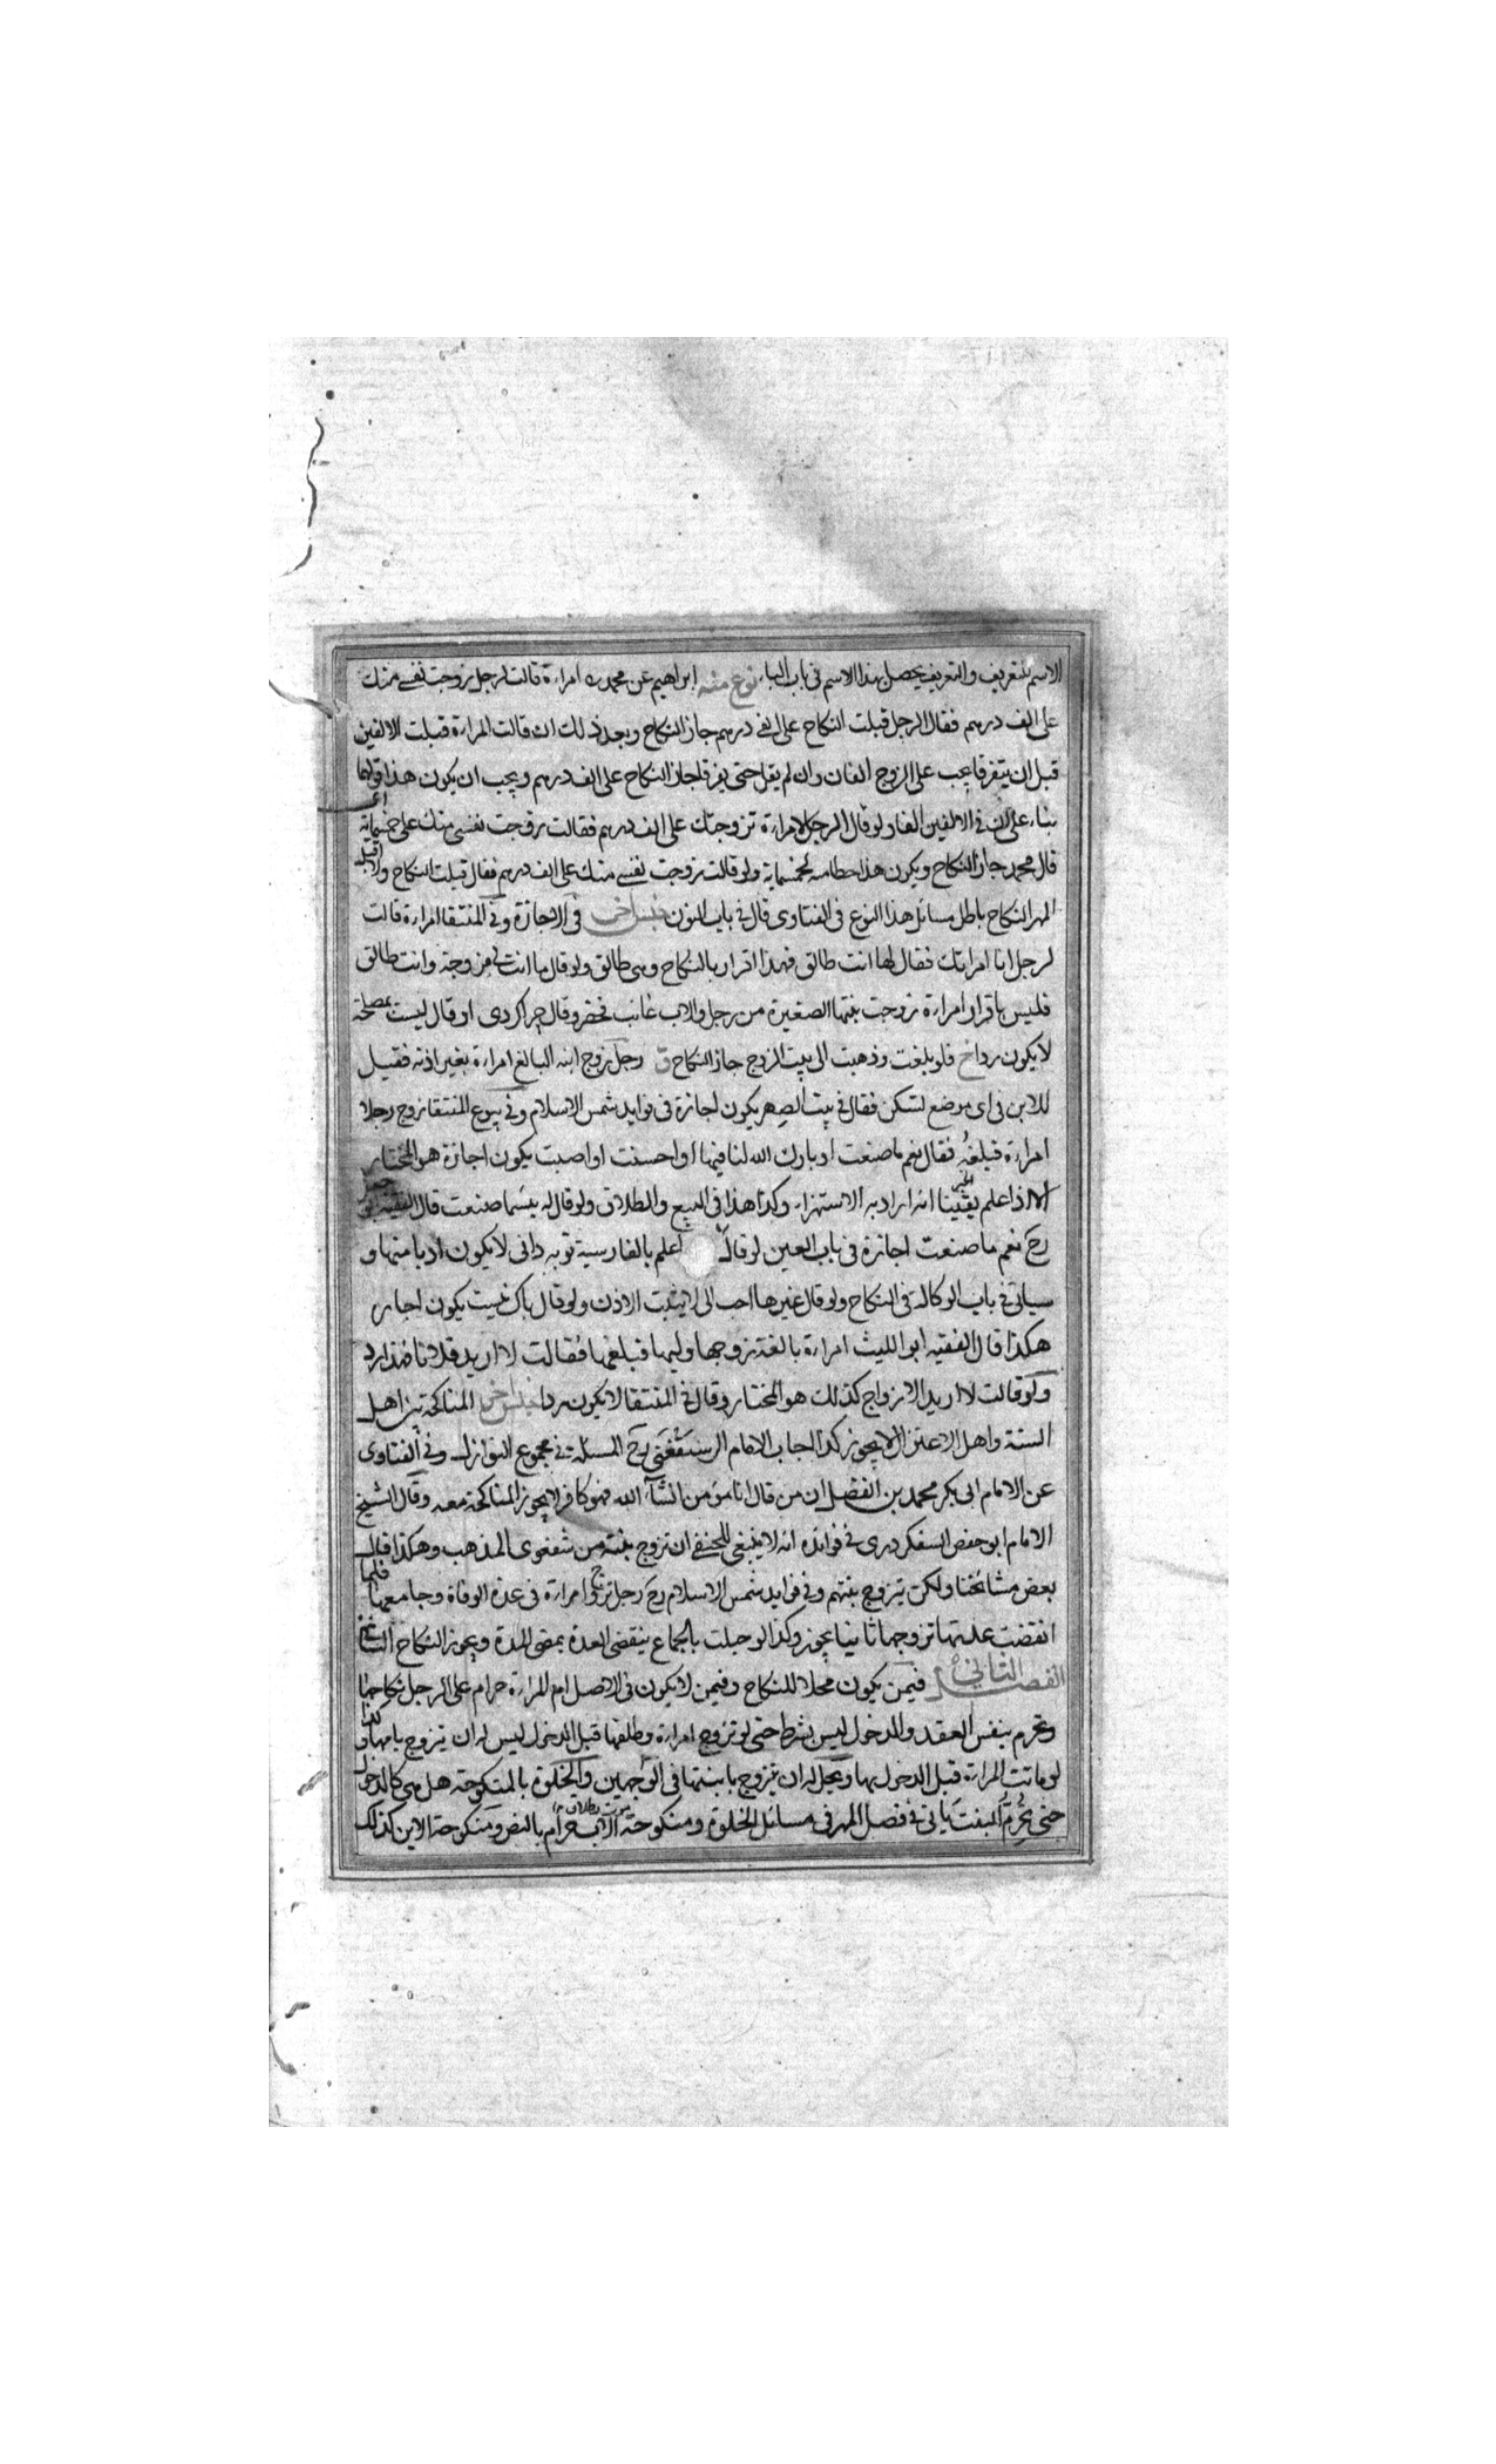 الاسم للتعريف والتعريف يحصل بهذا الاسم في باب الباء نوع منه ابراهيم عن محمد رح امراءة قالت لرجل زوجت نفسي منك
على الف درهم فقال الرجل قبلت النكاح على الفي درهم جاز النكاح وبعد ذلك ان قالت المراءة قبلت الالفين
قبل ان يتفرقا يجب على الزوج الفان وان لم يقل حتى يفرقا جاز النكاح على الف درهم ويجب ان يكون هذا قولهما
بناء على ان في الالفين الفا ولو قال الرجل لامراءة تزوجتك على الف درهم فقالت زوجت نفسي منك على خمسماية
قال محمد جاز النكاح ويكون هذا حطا منه لخمسماية ولو قالت زوجت نفسي منك على الف درهم فقال قبلت النكاح ولا اقبل
المهر النكاح باطل مسائل هذا النوع في الفتاوى قال في باب النون جنس اخر في الاجازة وفي المنتقا امراءة قالت
لرجل انا امراتك فقال لها انت طالق فهذا اقرار بالنكاح وهي طالق ولو قال ما انت لي بزوجة وانت طالق
فليس باقرار امراءة زوجت بنتها الصغيرة من رجل والاب غائب فحضر وقال چرا كردى او قال ليست بمصلحة
لا يكون ردا خ فلو بلغت وذهبت الى بيت الزوج جاز النكاح ق رجل زوج ابنه البالغ امراءة بغير اذنه فقيل
للابن في اى موضع تسكن فقال في بيت الصهر يكون اجازة في فوايد شمس الاسلام وفي بيوع المنتقا زوج رجلا
امراءة فبلغه فقال نعم ما صنعت او بارك الله لنا فيها او احسنت او اصبت يكون اجازة هو المختار
الا اذا علم يقينا انه اراد به الاستهزاء وكذا هذا في البيع والطلاق ولو قال له بئسما صنعت قال الفقيه ابو جعفر
رح نعم ما صنعت اجازة في باب العين لو قال اعلم بالفارسية تو به دانى لا يكون اذنا منها و
سياتي في باب الوكالة في النكاح ولو قال غيرها احب الى لا يثبت الاذن ولو قال باك نيست يكون اجازة
هكذا قال الفقيه ابو الليث امراءة بالغة زوجها وليها فبلغها فقالت لا اريد فلانا فهذا رد
ولو قالت لا اريد الازواج كذلك هو المختار وقال في المنتقا لا يكون ردا جنس اخر المناكحة بين اهل
السنة واهل الاعتزال لا يجوز كذا اجاب الامام الرستغفني رح المسئلة في مجموع النوازل وفي الفتاوى
عن الامام ابى بكر محمد بن الفضل ان من قال انا مؤمن انشآء الله فهو كافر لا يجوز المناكحة معه وقال الشيخ
الامام ابو حفص السفكردرى في فوائده انه لا ينبغي للحنفي ان تزوج بنته من شفعوى المذهب وهكذا قال
بعض مشائخنا ولكن يتزوج بنتهم وفي فوايد شمس الاسلام رح رجل تزوج امراءة في عدة الوفاة وجامعها فلما
انقضت عدتها تزوجها ثانيا يجوز وكذا لو حبلت بالجماع ينقضى العدة بمضى المدة ويجوز النكاح الثانى
الفصل الثانى فيمن يكون محلا للنكاح وفيمن لا يكون في الاصل ام المراءة حرام على الرجل نكاحها
وتحرم بنفس العقد والدخول ليس بشرط حتى لو تزوج امراءة وطلقها قبل الدخول ليس له ان يتزوج بامها وكذا
لو ماتت المراءة قبل الدخول بها ويحل له ان يتزوج بابنتها في الوجهين والخلوة بالمنكوحة هل هي كالدخول
حتى تحرم البنت ياتي في فصل المهر في مسائل الخلوة ومنكوحة الاب حرام بالنص ومنكوحة الابن كذلك